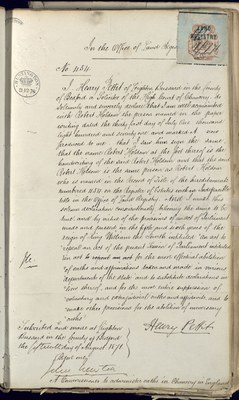 In the Office of Land Regis
No 454
I Henry Pettit of Leighton Buzzard in the County
of Bedford a Solicitor of the High Court of Chancery do
Solemnly and sincerely declare that I am well acquainted
with Robert the person named in the paper
writing dated the thirty first day of July One thousand
eight hundred and seventy one and marked A now
produced to me that I saw him sign the same
that the name Robert at the foot thereof is the
handwriting of the said Robert and that the said
Robert is the same person as Robert
who is named in the Record of Title of the hereditaments
numbered 454 on the Register of Estates with an Indefeasible
title in the Office of Land Registry And I make this
solemn declaration conscientiously believing the same to be
true and by virtue of the provisions of an Act of Parliament
made and passed in the fifth and sixth years of the
reign of King William the fourth intituled "An Act to
repeal an Act of the present Session of Parliament intituled
An Act to for the more effectual abolition
of oaths and affirmations taken and made in various
departments of the State and to substitute declarations in
lieu thereof and for the more entire suppression of
voluntary and extrajudicial oaths and affidavits and to
make other provisions for the abolition of unnecessary
oaths"
Subscribed and made at Leighton
Buzzard in the County of Bedford
the day of August 1871
Before me
Henry Pettit
John Newton
A Commissioner to administer oaths in Chancery in England